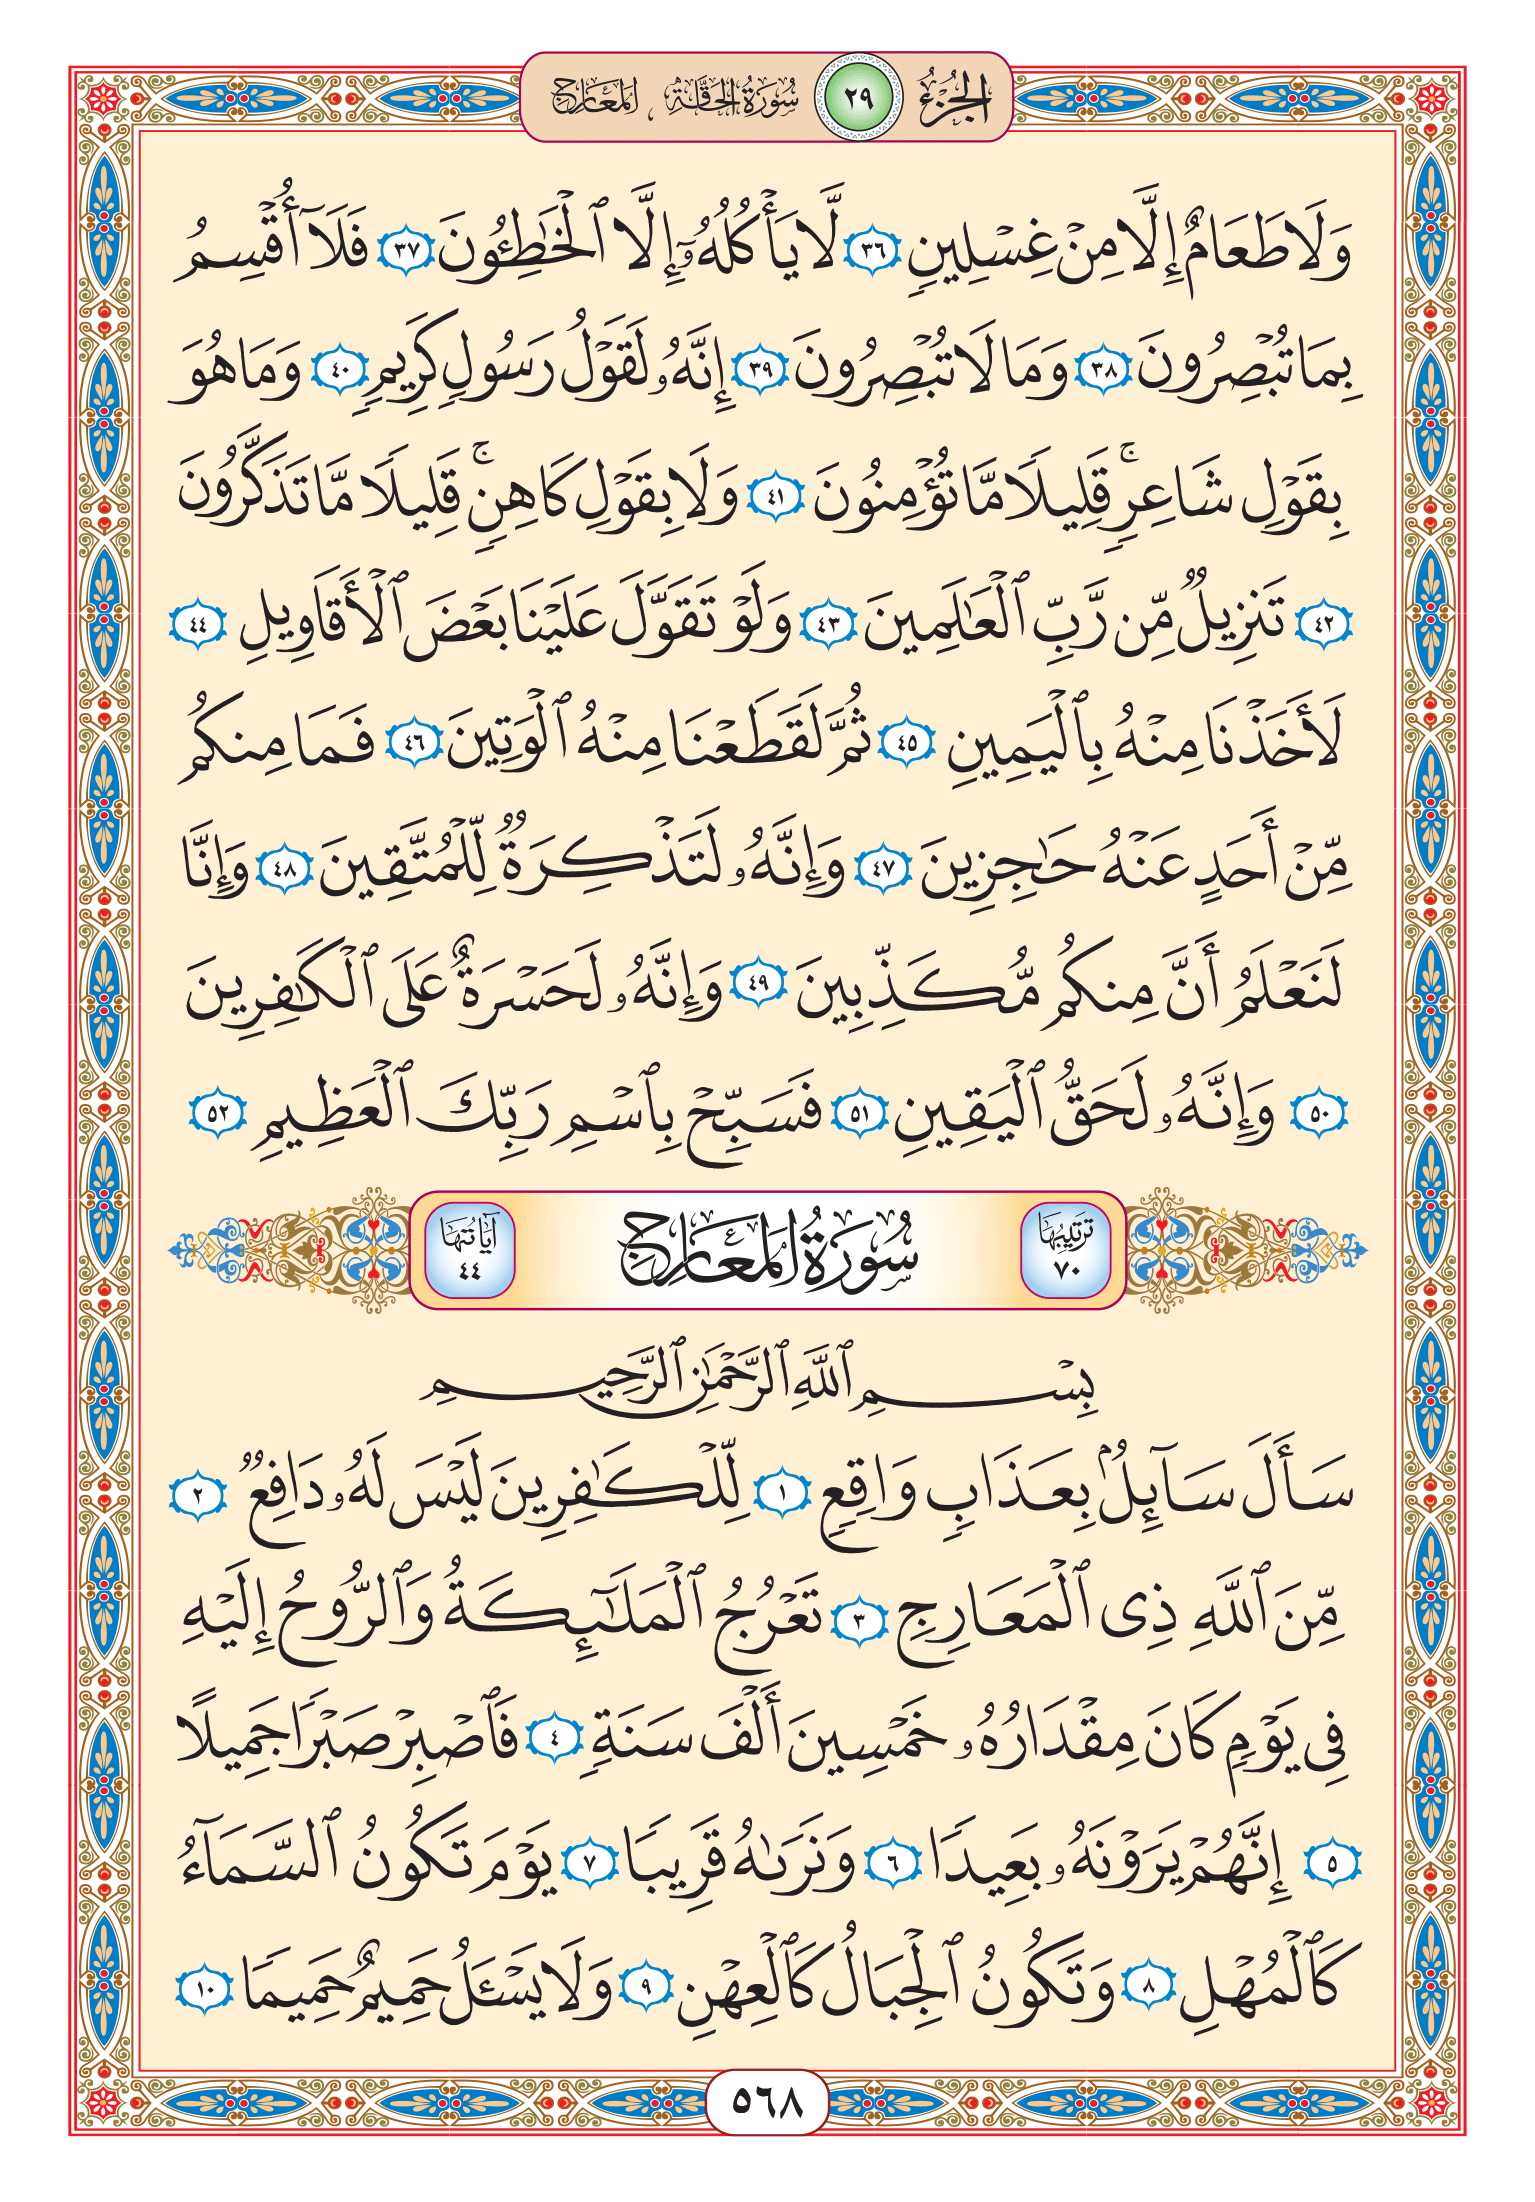 الجُزْءُ ٢٩ سُورَةُ الحَاقَّة ، المَعَارِج
وَلَا طَعَامٌ إِلَّا مِنْ غِسْلِينٍ ٣٦ لَّا يَأْكُلُهُۥٓ إِلَّا ٱلْخَٰطِـُٔونَ ٣٧ فَلَآ أُقْسِمُ
بِمَا تُبْصِرُونَ ٣٨ وَمَا لَا تُبْصِرُونَ ٣٩ إِنَّهُۥ لَقَوْلُ رَسُولٍ كَرِيمٍ ٤٠ وَمَا هُوَ
بِقَوْلِ شَاعِرٍ ۚ قَلِيلًا مَّا تُؤْمِنُونَ ٤١ وَلَا بِقَوْلِ كَاهِنٍ ۚ قَلِيلًا مَّا تَذَكَّرُونَ
٤٢ تَنزِيلٌ مِّن رَّبِّ ٱلْعَٰلَمِينَ ٤٣ وَلَوْ تَقَوَّلَ عَلَيْنَا بَعْضَ ٱلْأَقَاوِيلِ ٤٤
لَأَخَذْنَا مِنْهُ بِٱلْيَمِينِ ٤٥ ثُمَّ لَقَطَعْنَا مِنْهُ ٱلْوَتِينَ ٤٦ فَمَا مِنكُم
مِّنْ أَحَدٍ عَنْهُ حَٰجِزِينَ ٤٧ وَإِنَّهُۥ لَتَذْكِرَةٌ لِّلْمُتَّقِينَ ٤٨ وَإِنَّا
لَنَعْلَمُ أَنَّ مِنكُم مُّكَذِّبِينَ ٤٩ وَإِنَّهُۥ لَحَسْرَةٌ عَلَى ٱلْكَٰفِرِينَ
٥٠ وَإِنَّهُۥ لَحَقُّ ٱلْيَقِينِ ٥١ فَسَبِّحْ بِٱسْمِ رَبِّكَ ٱلْعَظِيمِ ٥٢
تَرتِيبُهَا ٧٠ سُورَةُ المَعَارِج آيَاتُهَا ٤٤
بِسْمِ ٱللَّهِ ٱلرَّحْمَٰنِ ٱلرَّحِيمِ
سَأَلَ سَآئِلٌۢ بِعَذَابٍ وَاقِعٍ ١ لِّلْكَٰفِرِينَ لَيْسَ لَهُۥ دَافِعٌ ٢
مِّنَ ٱللَّهِ ذِى ٱلْمَعَارِجِ ٣ تَعْرُجُ ٱلْمَلَٰٓئِكَةُ وَٱلرُّوحُ إِلَيْهِ
فِى يَوْمٍ كَانَ مِقْدَارُهُۥ خَمْسِينَ أَلْفَ سَنَةٍ ٤ فَٱصْبِرْ صَبْرًا جَمِيلًا
٥ إِنَّهُمْ يَرَوْنَهُۥ بَعِيدًا ٦ وَنَرَىٰهُ قَرِيبًا ٧ يَوْمَ تَكُونُ ٱلسَّمَآءُ
كَٱلْمُهْلِ ٨ وَتَكُونُ ٱلْجِبَالُ كَٱلْعِهْنِ ٩ وَلَا يَسْـَٔلُ حَمِيمٌ حَمِيمًا ١٠
٥٦٨